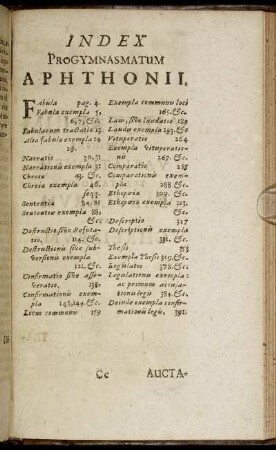 INDEX
PROGYMNASMATUM
APHTHONII.
FAbula pag. 4.
Fabulæ exempla 5,
6, 7, &c.
Fabularum tractatio 13
Alia fabula exempla 24
29.
Narratio 30, 31
Narrationis exempla 32
Chreia 43. &c.
Chreia exempla 46.
seqq.
Sententia 84, 85
Sententiæ exempla 88,
&c.
Destructio sive Refuta-
tio, 114. &c.
Destructionis sive sub-
versionis exempla
121. &c.
Confirmatio sive asse-
veratio, 138.
Confirmationis exem-
pla 143, 144. &c.
Locus communis 159
Exempla communis loci
165. &c.
Laus, sive laudatio 189
Laudis exempla 193. &c
Vituperatio 264
Exempla vituperatio-
nis 267. &c.
Comparatio 285
Comparationis exem-
pla 288 &c.
Ethopœia 309. &c.
Ethopœia exempla 313.
&c.
Descriptio 327
Descriptionis exempla
331. &c.
Thesis
Exempla Thesis 359. &c.
Legislatio 378. &c.
Legislationis exempla:
ac primum accusa-
tionis legis 384. &c.
Deinde exempla confir-
mationis legis. 392.
Cc AUCTA-